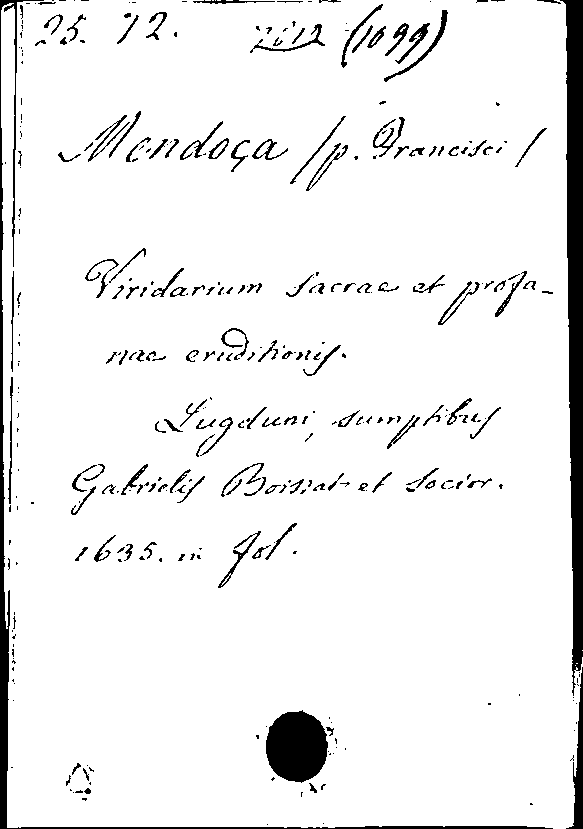 25. 72. 2012 (1099)
Mendoça /p. Francisci/
Viridarium sacrae et profa-
nae eruditionis.
Lugduni, sumptibus
Gabrielis Boissat et Socior.
1635. in fol.